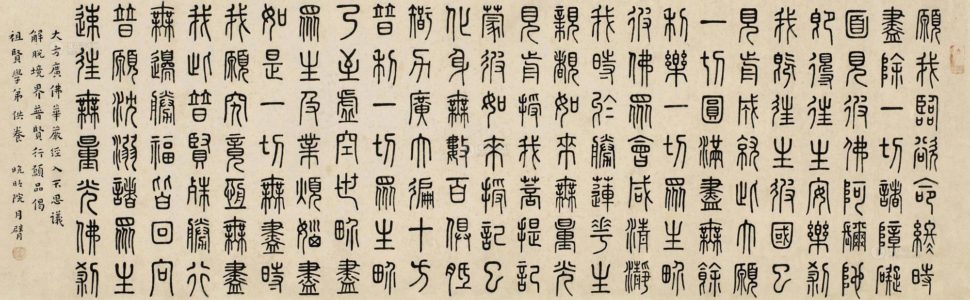 願我臨欲命終時
盡除一切諸障礙
面見彼佛阿彌陀
即得往生安樂剎
我既往生彼國已
見前成就此大願
一切圓滿盡無餘
利樂一切眾生界
彼佛眾會咸清淨
我時於勝蓮華生
親覩如來無量光
見前授我菩提記
蒙彼如來授記已
化身無數百俱胝
智力廣大徧十方
普利一切眾生界
乃至虛空世界盡
眾生及業煩惱盡
如是一切無盡時
我願究竟恆無盡
我此普賢殊勝行
無邊勝福皆回向
普願沈溺諸眾生
速往無量光佛剎
大方廣佛華嚴經入不思議
解脫境界普賢行願品偈
祖賢學弟供養 晚晴院月臂